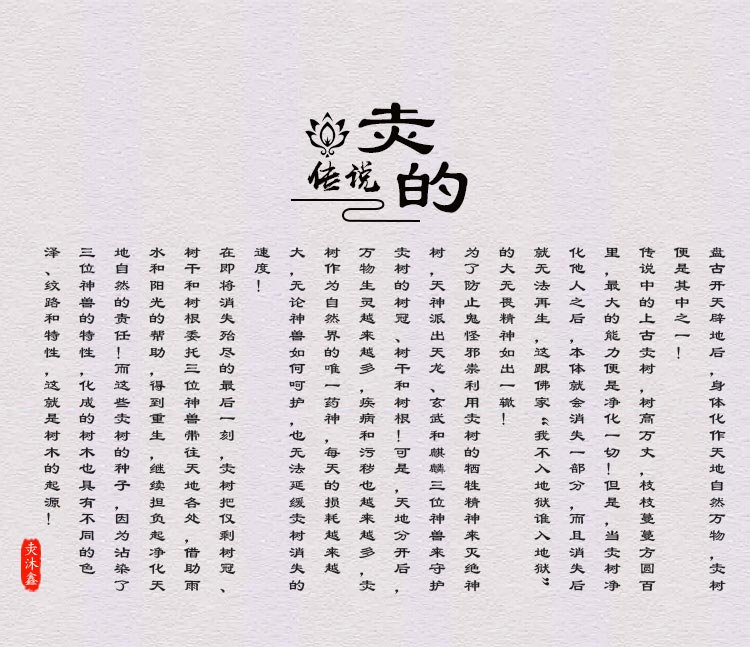 灻的
传说
盘古开天辟地后，身体化作天地自然万物，灻树
便是其中之一！
传说中的上古灻树，树高万丈，枝枝蔓蔓方圆百
里，最大的能力便是净化一切！但是，当灻树净
化他人之后，本体就会消失一部分，而且消失后
就无法再生，这跟佛家“我不入地狱谁入地狱”
的大无畏精神如出一辙！
为了防止鬼怪邪祟利用灻树的牺牲精神来灭绝神
树，天神派出天龙、玄武和麒麟三位神兽来守护
灻树的树冠、树干和树根！可是，天地分开后，
万物生灵越来越多，疾病和污秽也越来越多，灻
树作为自然界的唯一药神，每天的损耗越来越
大，无论神兽如何呵护，也无法延缓灻树消失的
速度！
在即将消失殆尽的最后一刻，灻树把仅剩树冠、
树干和树根委托三位神兽带往天地各处，借助雨
水和阳光的帮助，得到重生，继续担负起净化天
地自然的责任！而这些灻树的种子，因为沾染了
三位神兽的特性，化成的树木也具有不同的色
泽、纹路和特性，这就是树木的起源！
灻沐鑫